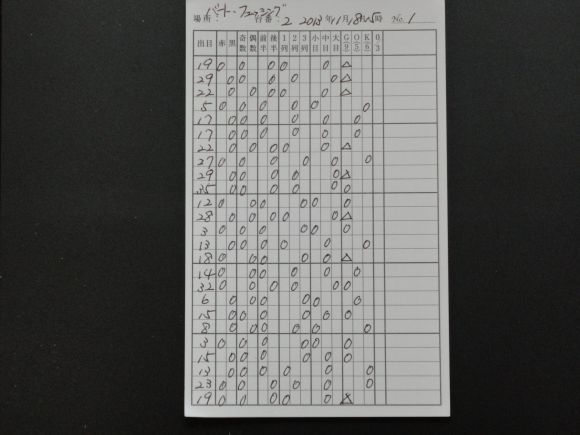 場所 バート・フェッシング 台番 2 2013年11月18日 時 No. 1
出目 赤 黒 奇数 偶数 前半 後半 1列 2列 3列 小目 中目 大目 G/9 O/5 K/6 0/3
19 0 0 0 0 0 △
29 0 0 0 0 △
22 0 0 0 0 0 △
5 0 0 0 0 0 0
17 0 0 0 0 0 0
17 0 0 0 0 0 0
22 0 0 0 0 0 △
27 0 0 0 0 0 0
29 0 0 0 0 0 △
35 0 0 0 0 0 0
12 0 0 0 0 0 0
28 0 0 0 0 0 △
3 0 0 0 0 0 0
13 0 0 0 0 0
18 0 0 0 0 0 △
14 0 0 0 0 0 0
32 0 0 0 0 0 0
6 0 0 0 0 0 0
15 0 0 0 0 0 0
8 0 0 0 0 0 0
3 0 0 0 0 0 0
15 0 0 0 0 0 0
13 0 0 0 0 0 0
23 0 0 0 0 0 0
19 0 0 0 0 0 △